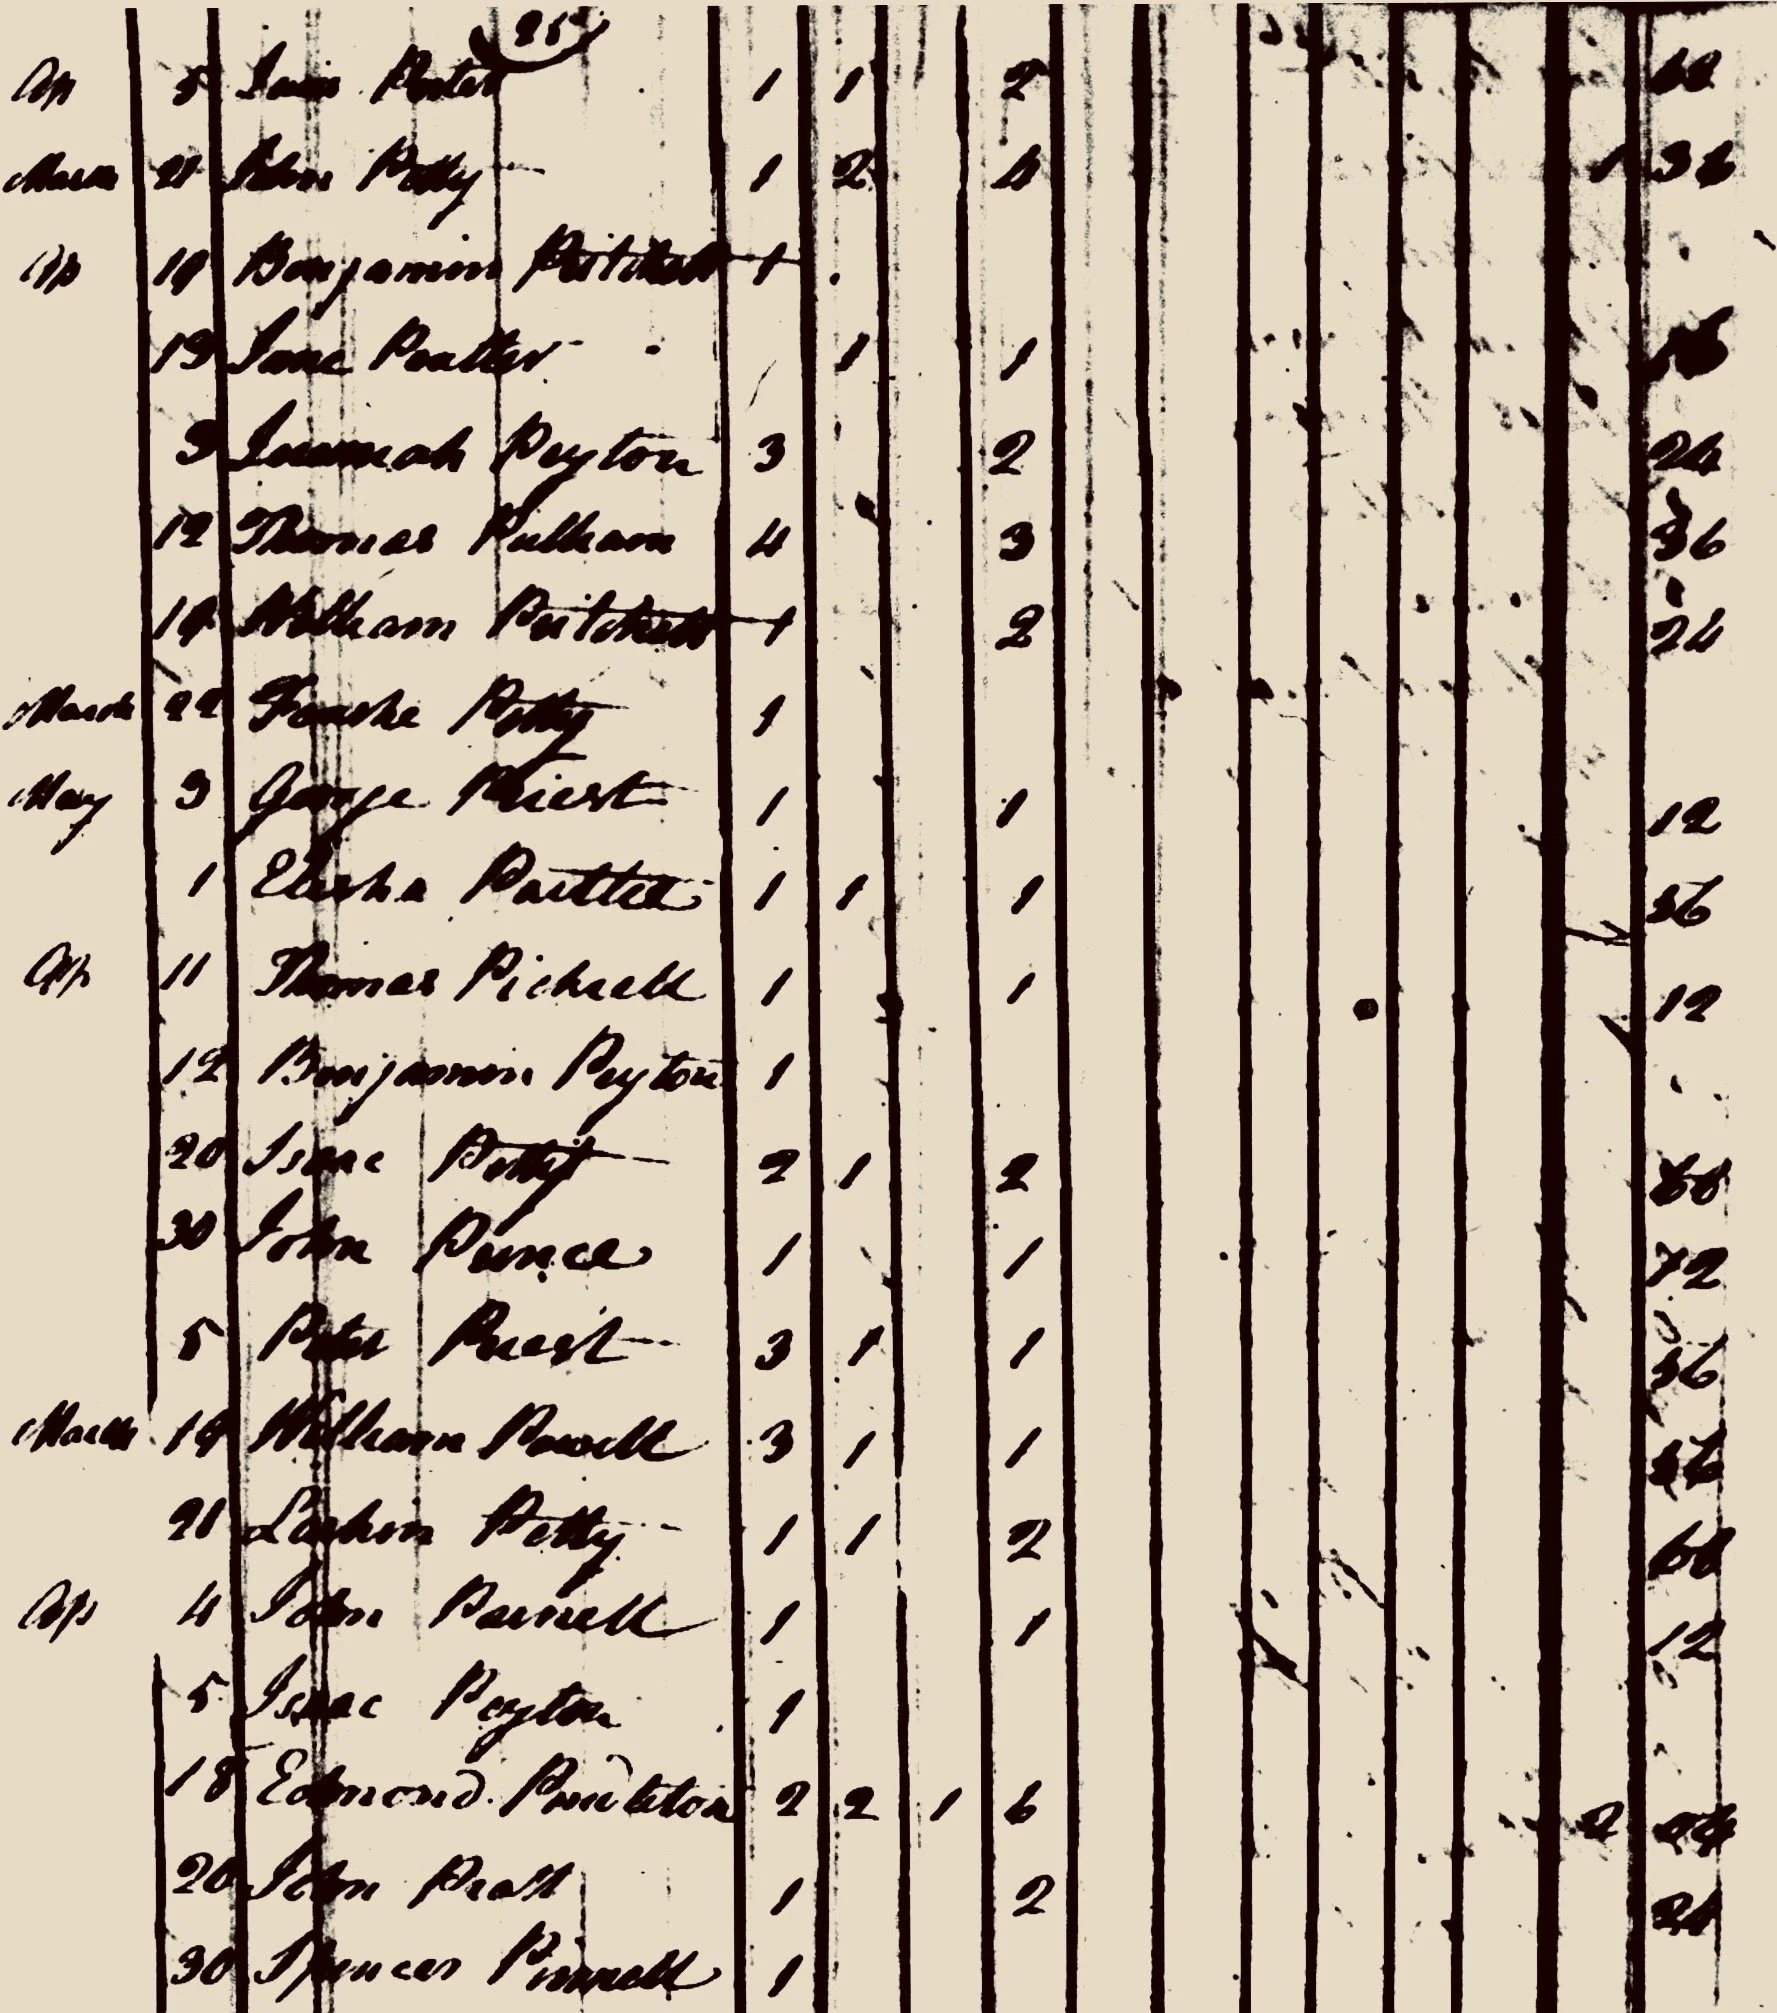 25
Ap 5 Porter 1 1 2 68
March 21 John Petty 1 2 4 1 36
Ap 19 Benjamin Pritchett 1
13 Jane 1 1
3 Jeremiah Peyton 3 2 24
12 Thomas Pulham 4 3 36
19 William Pritchett 1 2 24
March 22 Petty 1
May 3 George Priest 1 1 12
1 Elisha 1 1 1 56
Ap 11 Thomas Pickrell 1 1 12
12 Benjamin Peyton 1
20 Isaac Petty 2 1 2 68
30 John 1 1 72
5 Peter Priest 3 1 1 56
March 19 William Powell 3 1 1 56
21 Larkin Petty 1 1 2 68
Ap 4 John 1 1 12
5 Isaac Peyton 1
18 Edmond Pendleton 2 2 1 6 2
20 John Pratt 1 2 24
30 Spencer Pinnell 1